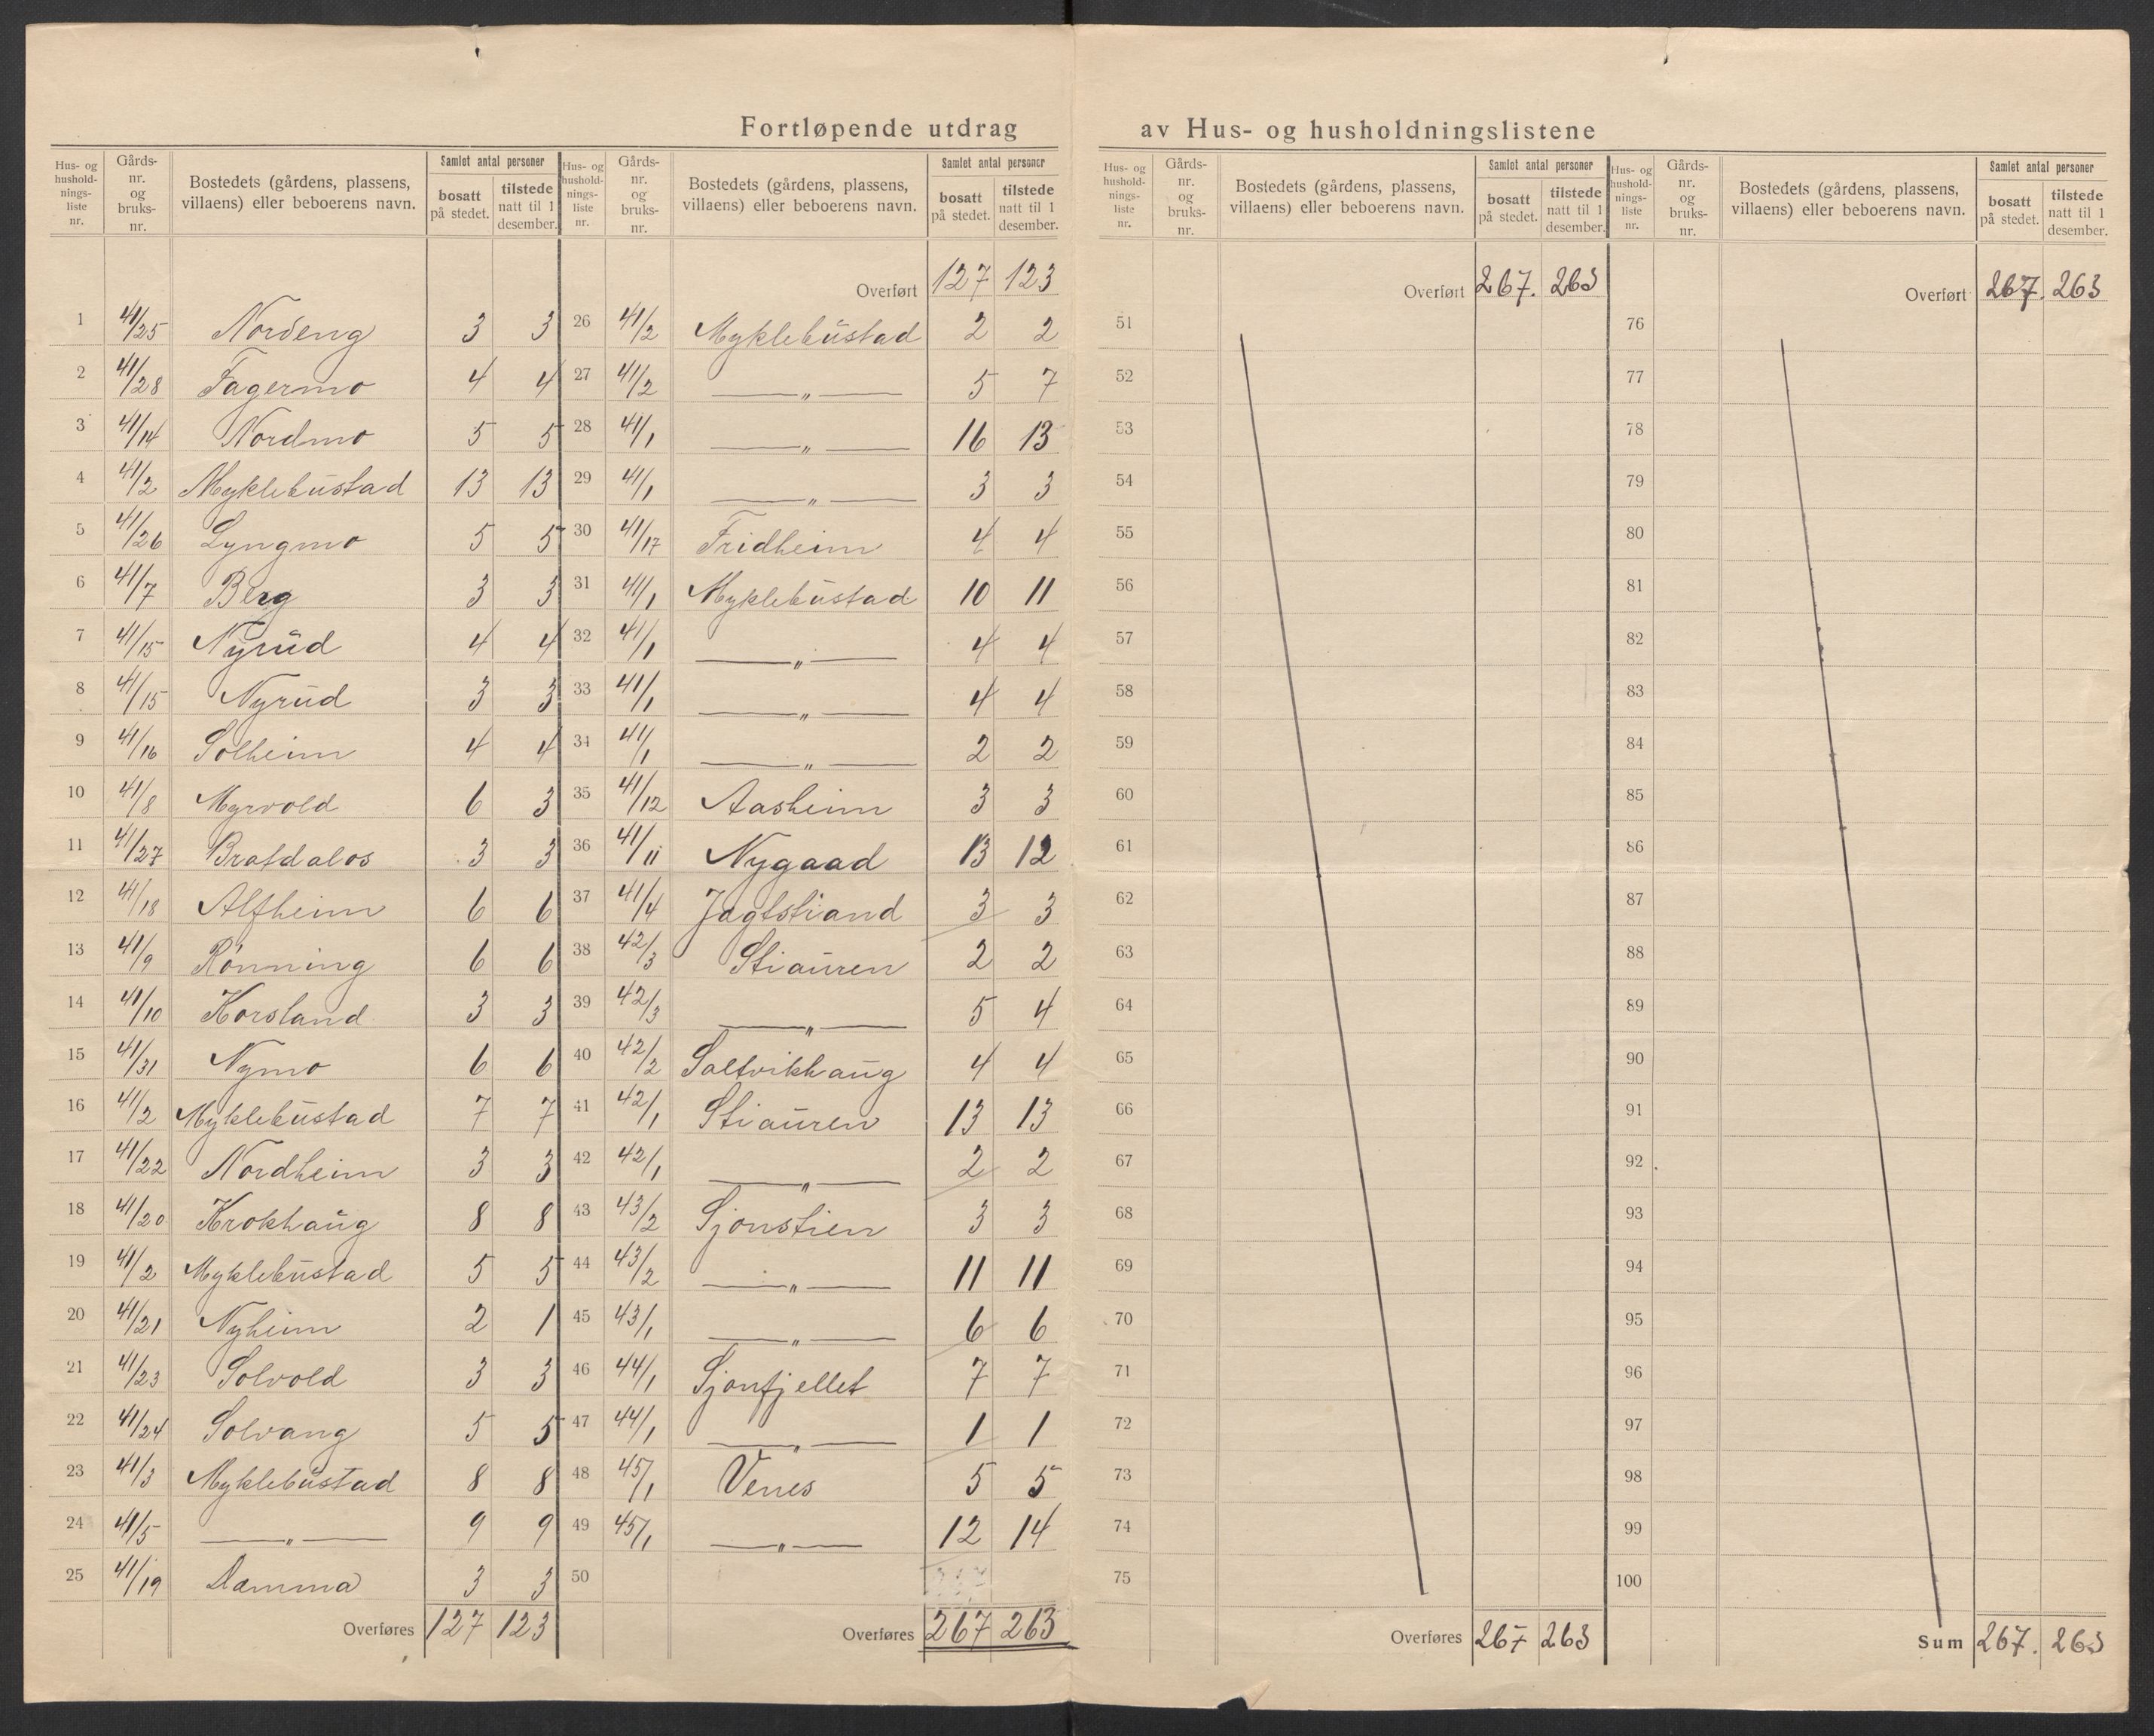 Fortløpende utdrag av Hus- og husholdningslistene
Hus- og husholdnings-liste nr. | Gårds-nr. og bruks-nr. | Bostedets (gårdens, plassens, villaens) eller beboerens navn. | Samlet antal personer bosatt på stedet. | tilstede natt til 1 desember.
1 41/25 Nordeng 3 3
2 41/28 Fagermo 4 4
3 41/14 Nordmo 5 5
4 41/2 Myklebustad 13 13
5 41/26 Lyngmo 5 5
6 41/7 Berg 3 3
7 41/15 Nyrud 4 4
8 41/15 Nyrud 3 3
9 41/16 Solheim 4 4
10 41/8 Myrvold 6 3
11 41/27 Bratdalos 3 3
12 41/18 Alfheim 6 6
13 41/9 Rønning 6 6
14 41/10 Korsland 3 3
15 41/31 Nymo 6 6
16 41/2 Myklebustad 7 7
17 41/22 Nordheim 3 3
18 41/20 Krokhaug 8 8
19 41/2 Myklebustad 5 5
20 41/21 Nyheim 2 1
21 41/23 Solvold 3 3
22 41/24 Solvang 5 5
23 41/3 Myklebustad 8 8
24 41/5 —„— 9 9
25 41/19 Damma 3 3
Overføres 127 123
Hus- og husholdnings-liste nr. | Gårds-nr. og bruks-nr. | Bostedets (gårdens, plassens, villaens) eller beboerens navn. | Samlet antal personer bosatt på stedet. | tilstede natt til 1 desember.
Overført 127 123
26 41/2 Myklebustad 2 2
27 41/2 —„— 5 7
28 41/1 —„— 16 13
29 41/1 —„— 3 3
30 41/17 Fridheim 4 4
31 41/1 Myklebustad 10 11
32 41/1 —„— 4 4
33 41/1 —„— 4 4
34 41/1 —„— 2 2
35 41/12 Aasheim 3 3
36 41/11 Nygaad 13 12
37 41/4 Jagtstrand 3 3
38 42/3 Stiauren 2 2
39 42/3 —„— 5 4
40 42/2 Saltvikhaug 4 4
41 42/1 Stiauren 13 13
42 42/1 —„— 2 2
43 43/2 Sjonstien 3 3
44 43/2 —„— 11 11
45 43/1 —„— 6 6
46 44/1 Sjonfjellet 7 7
47 44/1 —„— 1 1
48 45/1 Venes 5 5
49 45/1 —„— 12 14
50
Overføres 267 263
Hus- og husholdnings-liste nr. | Gårds-nr. og bruks-nr. | Bostedets (gårdens, plassens, villaens) eller beboerens navn. | Samlet antal personer bosatt på stedet. | tilstede natt til 1 desember.
Overført 267. 263
51
52
53
54
55
56
57
58
59
60
61
62
63
64
65
66
67
68
69
70
71
72
73
74
75
Overføres 267 263
Hus- og husholdnings-liste nr. | Gårds-nr. og bruks-nr. | Bostedets (gårdens, plassens, villaens) eller beboerens navn. | Samlet antal personer bosatt på stedet. | tilstede natt til 1 desember.
Overført 267. 263
76
77
78
79
80
81
82
83
84
85
86
87
88
89
90
91
92
93
94
95
96
97
98
99
100
Sum 267. 263